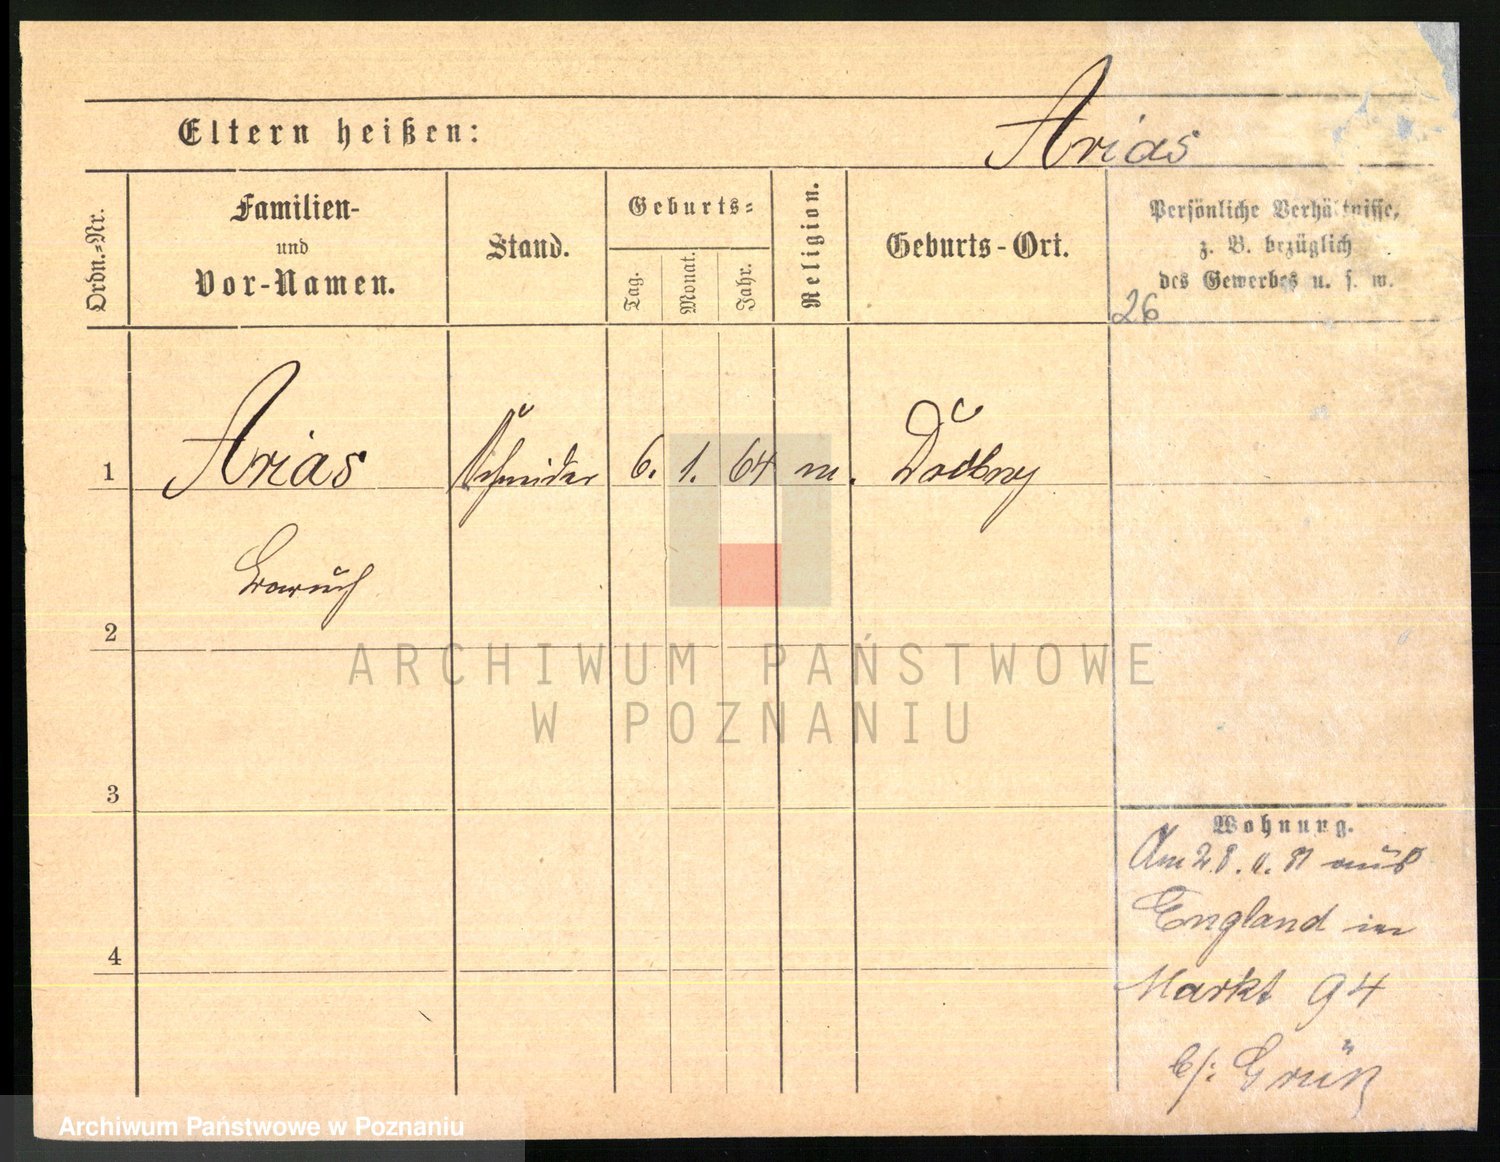 Arias
Eltern heißen:
Ordn.-Nr.
Familien-
und
Vor-Namen.
Stand.
Geburts-
Tag.
Monat.
Jahr.
Religion.
Geburts-Ort.
Persönliche Verhältnisse,
z. B. bezüglich
des Gewerbes u. s. w.
26
1 Arias Schneider 6. 1. 64 m.
Baruch
2
ARCHIWUM PAŃSTWOWE
W POZNANIU
3
4
Wohnung.
Am 28. 81 aus
England in
Markt 94
b/:
Archiwum Państwowe w Poznaniu